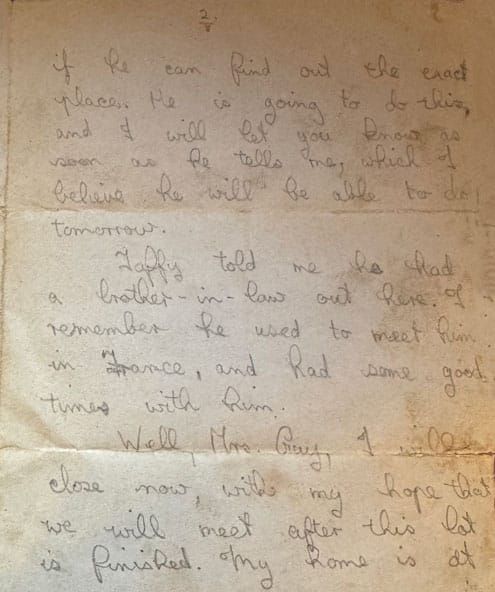 2
if he can find out the exact
place. He is going to do this,
and I will let you know as
soon as he tells me, which I
believe he will be able to do
tomorrow.
Taffy told me he had
a brother-in-law out here. I
remember he used to meet him
in France, and had some good
times with him.
Well, Mrs. Guy, I will
close now, with my hope that
we will meet after this lot
is finished. My home is at